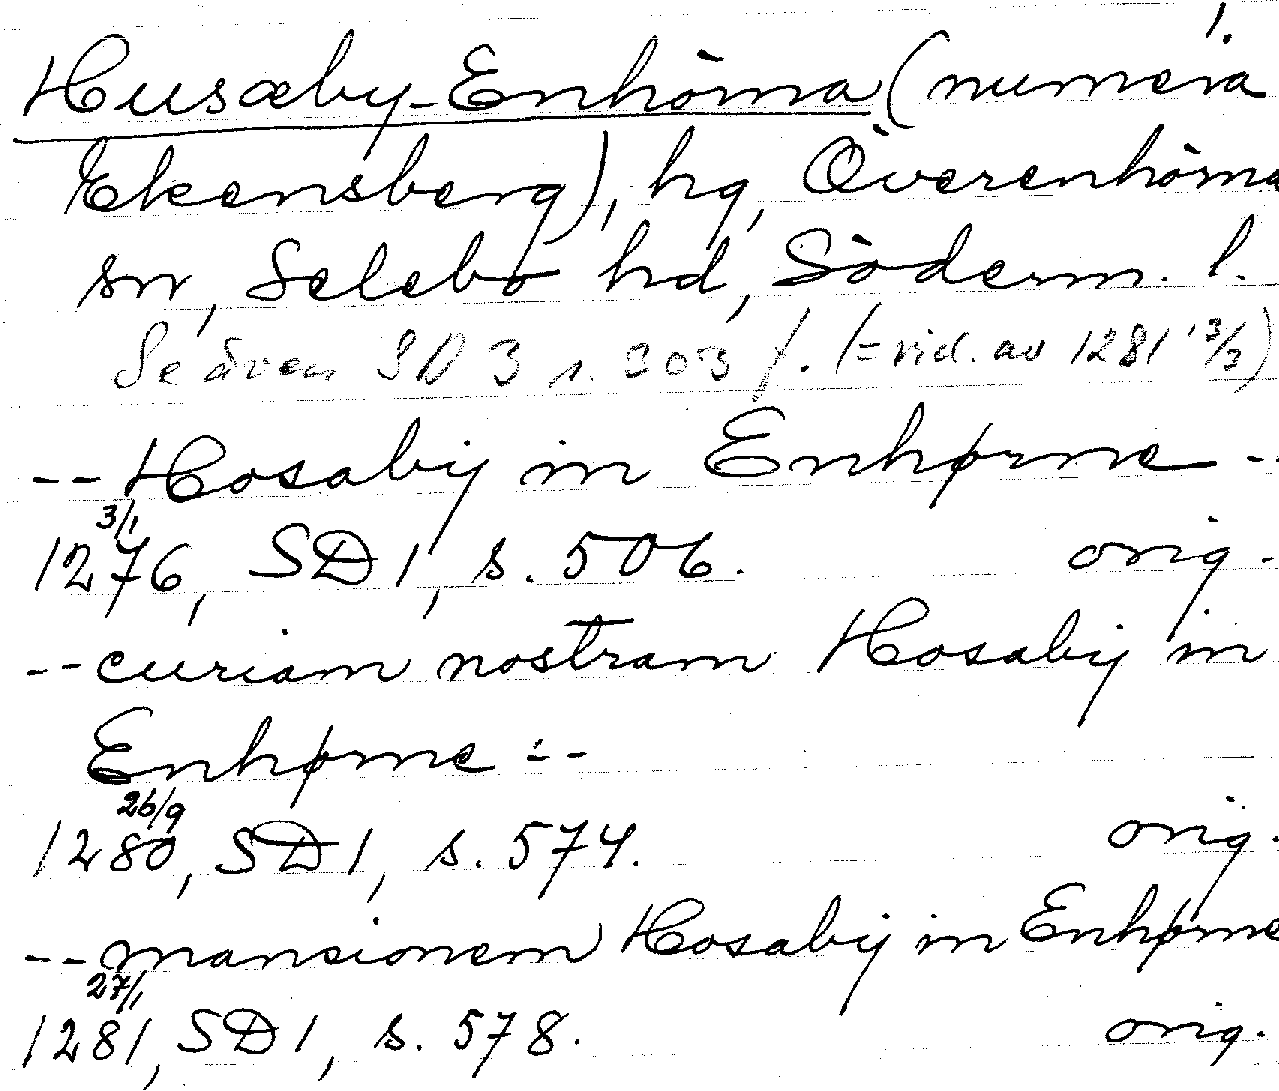 1.
Husæby-Enhörna (numera
Ekensberg), hg, Överenhörna
sn, Selebo hd, Söderm. l.
Se även SD 3 s. 203 f. (= vid. av 1281 3/3)
-- Hosabij in Enhørne --
3/1
1276, SD 1, s. 506. orig.
-- curiam nostram Hosabij in
Enhørne --
26/9
1280, SD 1, s. 574. orig.
-- mansionem Hosabij in Enhørne
27/1
1281, SD 1, s. 578. orig.